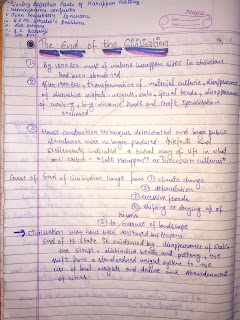 Piecing together Parts of Harappan History
Cunningham's confusion
John Marshall's Ignorance
R.E.M. Wheeler's Problems
The End of the Civilisation
① By 1800 BCE most of mature harappan sites in cholistan
had been abandoned
② After 1900 BCE, transformation of material culture, disappearance
of distinctive script, weights, seals, special beads, disappearance
of writing, long distance trade and craft specialisation
③ House construction techniques deteriorated and large public
structures were no longer produced. Artefacts and
settlements indicated a rural way of life in what
are called - "Late Harappan" or "successor cultures"
Causes of End of civilisation range from ① climate change
② deforestation
③ excessive floods
④ shifting or drying up of
rivers
⑤ to overuse of landscape
→ Civilisation may have been destroyed by
End of H-State is evidenced by disappearance of seals,
the script, distinctive beads and pottery, the
shift from a standardised weight system to the
use of local weights and decline and abandonment
of cities.